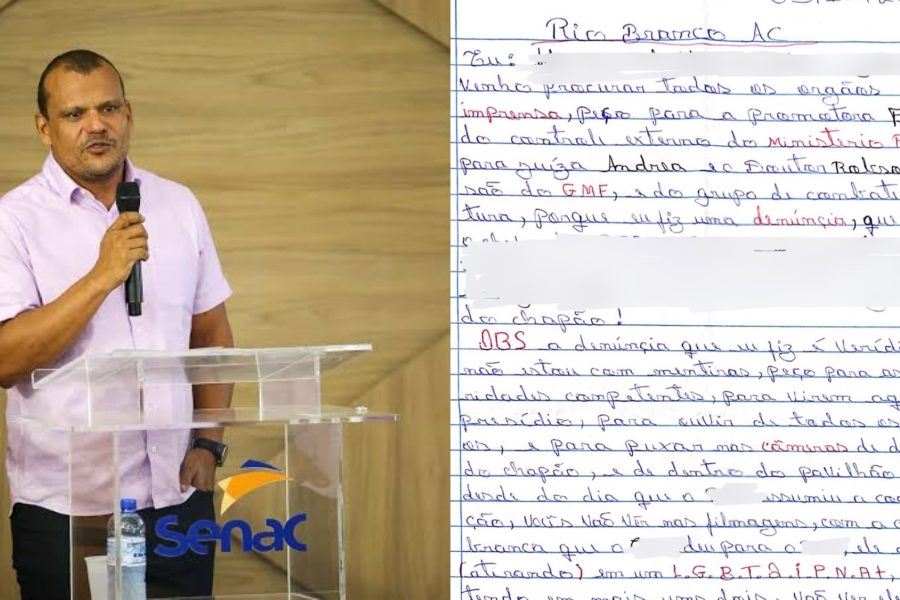 senac
Rio Branco AC
Eu:
Venho procurar todos os orgãos
imprensa, peço para a promotora
do controli externo do ministerio
para juíza Andrea e o Doutor Robson
são do GMF, e do grupo de combati
tura, porque eu fiz uma denúncia, que
do chapão!
OBS a denúncia que eu fiz é verídi
não estou com mentiras, peço para as
ridades competentes, para virem aq
presídio, para ouvir de todos os
os, e para puxar nas câmeras de d
do chapão, e de dentro do pavilhão
desde do dia que o assumiu a co
ção, vocês vão ver nas filmagens, com a
branca que o deu para o , ele
(atirando) em um L.G.B.T.2.i.P.N.A+,
tendo em mais uns dois, vão ver ele